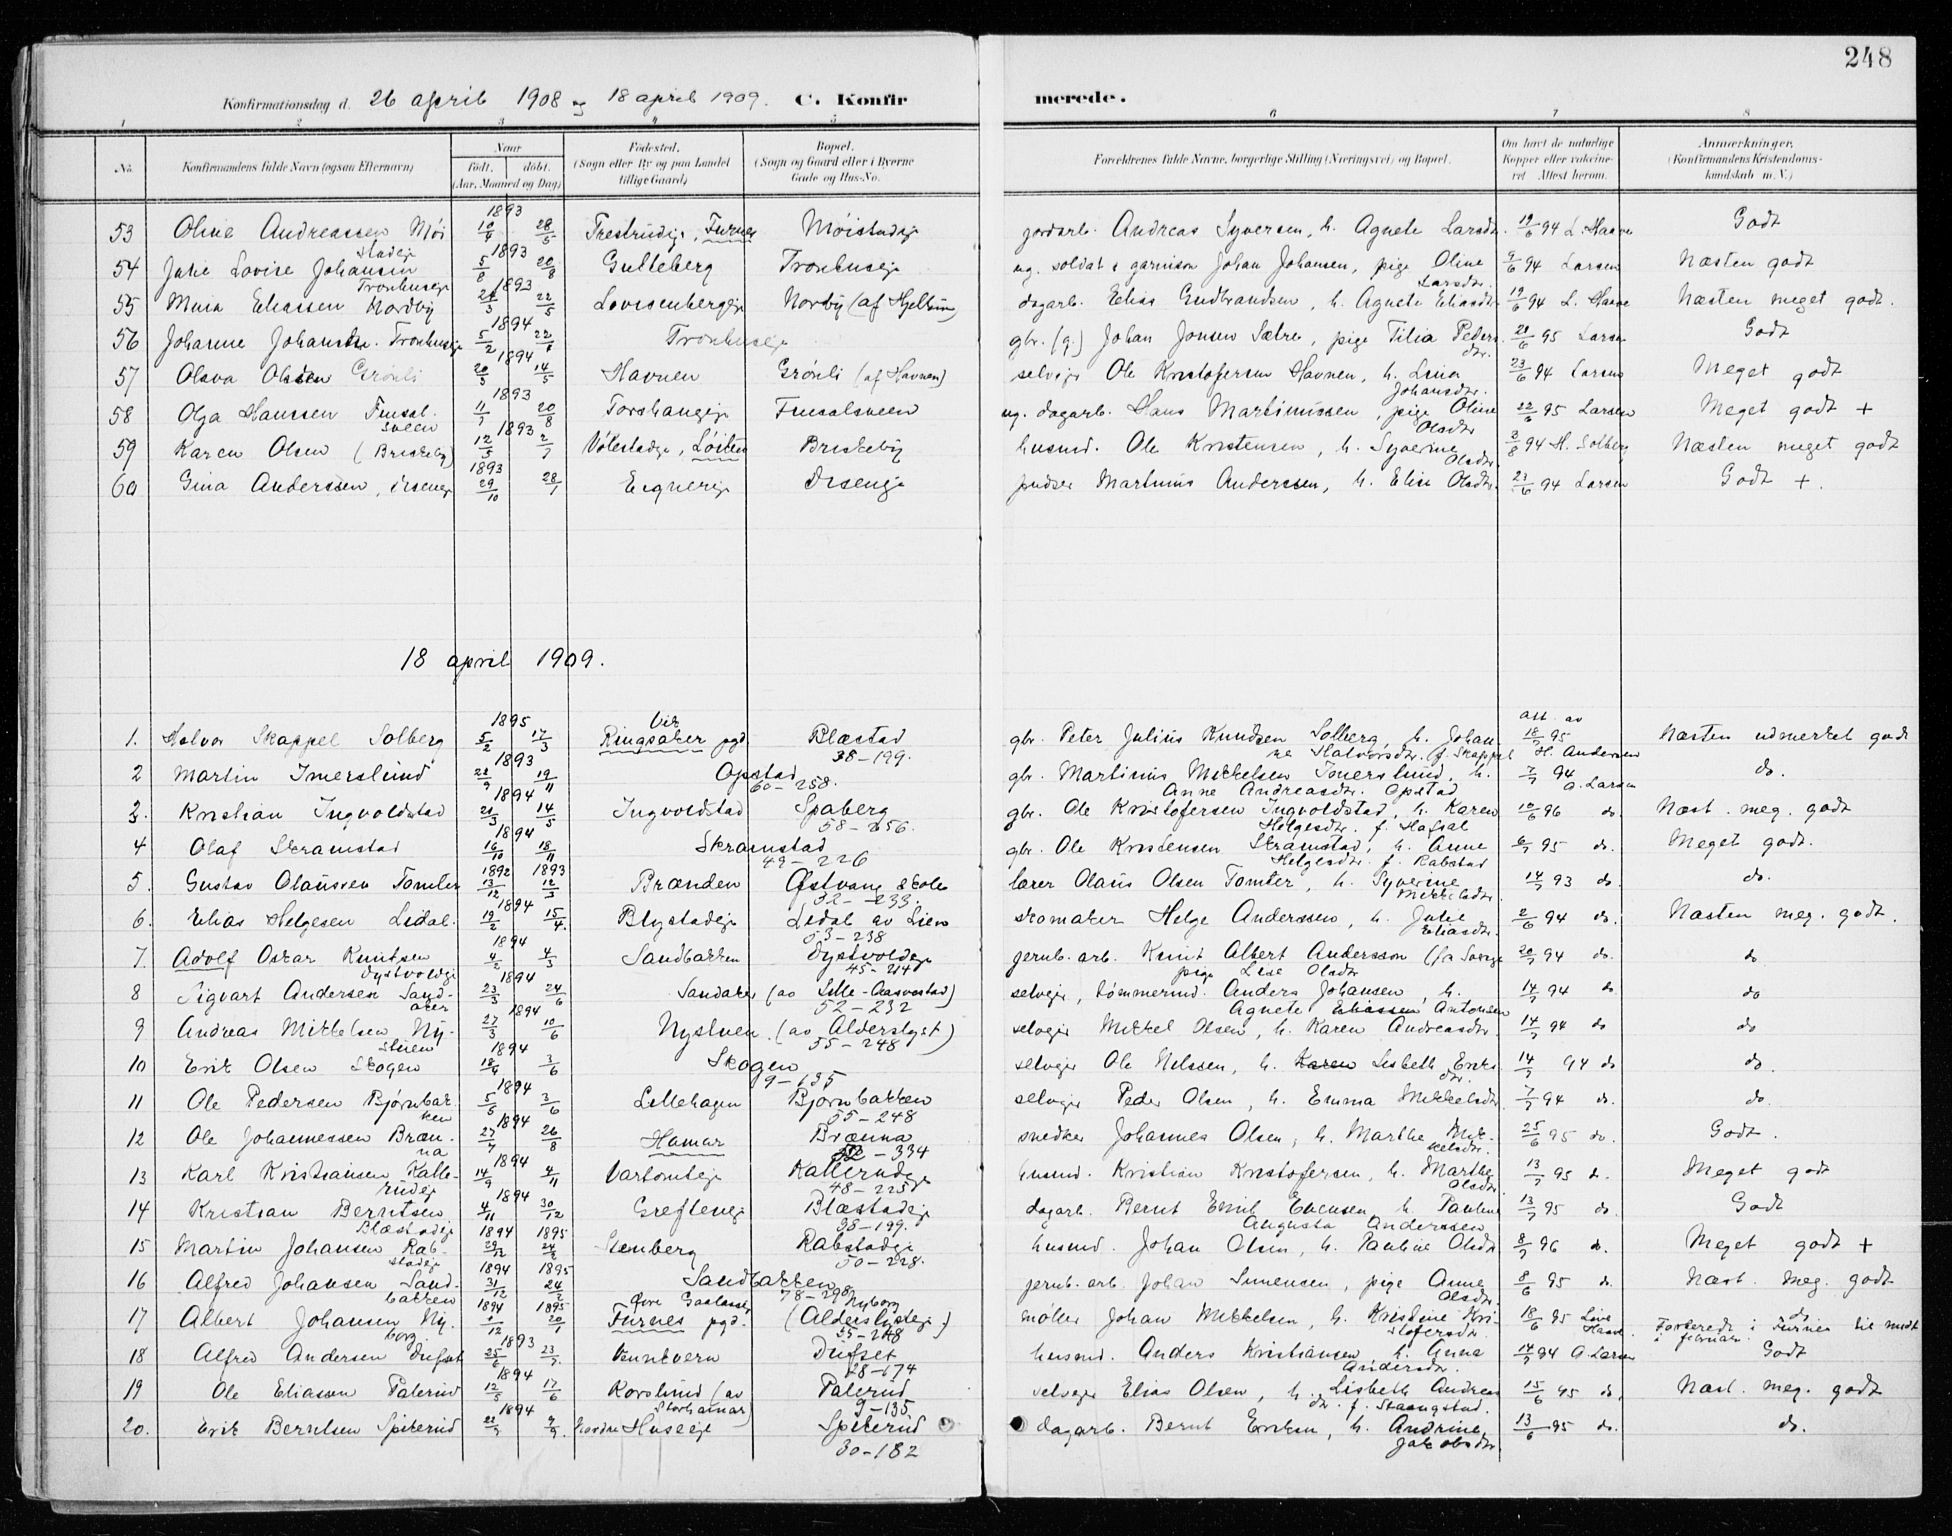 248
Konfirmationsdag d. 26 april 1908 og 18 april 1909. C. Konfirmerede.
1 2 3 4 5 6 7 8
No. Konfirmandens fulde Navn (ogsaa Efternavn) Naar født. døbt. (Aar, Maaned og Dag) Fødested. (Sogn eller By og paa Landet tillige Gaard) Bopæl. (Sogn og Gaard eller i Byerne Gade og Hus-No. Forældrenes fulde Navne, borgerlige Stilling (Næringsvei) og Bopæl. Om havt de naturlige Kopper eller vaksineret. Attest herom. Anmærkninger. (Konfirmandens Kristendomskundskab m. V.)
53 Oline Andreassen Møistadeje 1893 10/4 28/5 Frestrudeje, Furnes Møistadeje jordarb. Andreas Syversen, h. Agnete Larsdtr. 19/6 94 L. Haave Godt
54 Julie Lovise Johansen Tronhuseje 1893 5/8 20/8 Gulleberg Tronhuseje ug. soldat i garnison Johan Johansen, pige Oline Larsdtr. 9/6 94 Larsen Næsten godt
55 Maria Eliassen Nordby 1893 24/3 22/5 Lovisenbergeje Norby (af Hjelsum) dagarb. Elias Gudbrandsen, h. Agnete Eliasdtr. 19/6 94 L. Haave Næsten meget godt.
56 Johanne Johansen Tronhuseje 1894 5/2 22/4 Tronhuseje gbr. (g.) Johan Jonsen Sætre, pige Tilia Pedersdtr. 20/6 95 Larsen Godt
57 Olava Olsen Grønli 1894 20/3 14/5 Havnen Grønli (af Havnen) selveje Ole Kristofersen Havnen, h. Lina Johansdtr. 23/6 94 Larsen Meget godt
58 Olga Hanssen Finsalsveen 1893 11/7 20/8 Torshaugeje Finsalsveen ug. dagarb. Hans Martinussen, pige Oline Olsdtr 22/6 95 Larsen Meget godt +
59 Karen Olsen (Briskeby) 1893 12/5 2/7 Vølestadeje, Løiten Briskeby husmd. Ole Kristensen, h. Syverine Olsdtr. 3/8 94 H. Solberg Næsten meget godt
60 Gina Anderssen, Diseneje 1893 29/10 28/1 Eegnereje Disenge pudser Martinius Anderssen, h. Elise Olsdtr. 23/6 94 Larsen Godt +.
18 april 1909.
1. Halvor Skappel Solberg 1895 5/2 17/3 Ringsaker pgd Blæstad 38-199. gbr. Peter Julius Knudsen Solberg, h. Johanne Halvorsdtr. f. Skappel att. av 18/7 95 H. Andersen Næsten udmerket godt
2 Martin Imerslund 1893 22/9 19/11 Opstad 60-258. gbr. Martinus Mikkelsen Imerslund, h. Anne Andreasdtr. Opstad 7/7 94 O. Larsen do.
3. Kristian Ingvoldstad 1894 21/3 14/5 Ingvoldstad Spaberg 58-256. gbr. Ole Kristofersen Ingvoldstad, h. Karen Helgesdtr. f. Hafsal 10/6 96 do. Næst. meg. godt
4 Olaf Skramstad 1894 16/10 18/11 Skramstad 49-226 gbr. Ole Kristensen Skramstad, h. Anne Helgesdtr. f. Rabstad 6/7 95 do. Meget godt.
5. Gustav Olaussen Tomter 1892 13/12 1893 12/3 Brænden Østvang skole 52-233. lærer Olaus Olsen Tomter, h. Syverine Mikkelsdtr. 14/7 93 do. do.
6. Elias Helgesen Lidal. 1894 19/2 15/4. Blystadeje Lidal av Lien 53-238 skomaker Helge Anderssen, h. Julie Eliasdtr. 2/6 94 do. Næsten meg. godt.
7. Adolf Oskar Knutsen Dystvoldeje 1894 4/2 4/3 Sandbakken Dystvoldeje 45-214 jernb. arb. Knut Albert Andersson (fra Sverige pige Lise Olsdtr 20/7 94 do. do
8 Sigvart Andersen Sandaker 1894 23/3 24/6 Sandaker (av Lille-Aasvestad) 52-232 selveier, tømmermd. Anders Johansen, h. Agnete Eliassen Antonsen 14/7 94 do do
9 Andreas Mikkelsen Nystuen 1894 27/3 10/6 Nystuen (av Alderslyst) 55-248 selveier Mikkel Olsen, h. Karen Andreasdtr. 14/7 94 do do
10 Erik Olsen Skogen 1894 18/4 3/6 Skogen 9-135 selveier Ole Nilssen, h. Karen Lisbeth Eriksdtr. 14/7 94 do do.
11 Ole Pedersen Bjørnbakken 1894 5/5 3/6 Lillehagen Bjørnbakken 55-248 selveier Peder Olsen, h. Emma Mikkelsdtr. 7/7 94 do. do.
12 Ole Johannessen Brænna 1894 27/4 26/8 Hamar Brænna -334 snedker Johannes Olsen, h. Marthe Mikkelsdtr. 25/6 95 do. Godt.
13 Karl Kristiansen Kallerudeje 1894 14/9 4/11 Vartomteje Kallerudeje 48-225 husmd. Kristian Kristofersen, h. Marthe Olsdtr. 13/7 95 do. Meget godt
14 Kristian Berntsen Blæstadeje 1894 4/11 30/12 Grefteneje Blæstadeje 38-199. dagarb. Bernt Emil Evensen, h. Pauline Augusta Anderssen 13/7 95 do. Godt
15 Martin Johansen Rabstadeje 1894 29/12 1895 24/2 Stenberg Rabstadeje 50-228. husmd. Johan Olsen, h. Pauline Olsdtr 8/7 96 do. Meget godt +
16 Alfred Johansen Sandbakken 1894 31/12 1895 24/2 Sandbakken 78-298 jernb. arb. Johan Simensen, pige Anne Olsdtr. 8/6 95 do. Næst. meg. godt
17 Albert Johansen Nyborg 1894 /12 1895 20/1 Øvre Gaalaaseje Furnes pgd. Nyborg (Alderslysteje) 55-248 møller Johan Mikkelsen, h. Kristine Kristofersdtr. 18/6 95 Line Haave. do. Forberedt i Furnes til midt i februar.
18 Alfred Andersen Dufset 1893 25/6 23/7 Vennkvern Dufset 28-174 husmd. Anders Kristiansen, h. Anna Andersdtr. 14/7 94 O. Larsen Godt
19 Ole Eliasen Palerud 1894 12/5 17/6 Korslund (av Storhamar) Palerud 9-135 selveier Elias Olsen, h. Lisbeth Andreasdtr. f. Staangstad. 15/6 95 do. Næst. meg. godt
20. Erik Berntsen Spikerud 1894 22/7 9/9. Nordre Huseeje Spikerud 30-182 dagarb. Bernt Eriksen, h. Andrine Jakobsdtr 13/6 95 do. do.